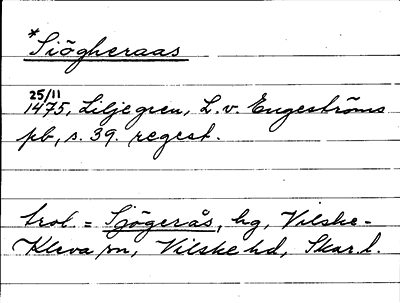 *Siögheraas
25/11
1475, Liljegren, L. v. Engeströms
pb, s. 39. regest.
trol = Sjögerås, hg, Vilske-
Kleva sn, Vilske hd, Skar. l.